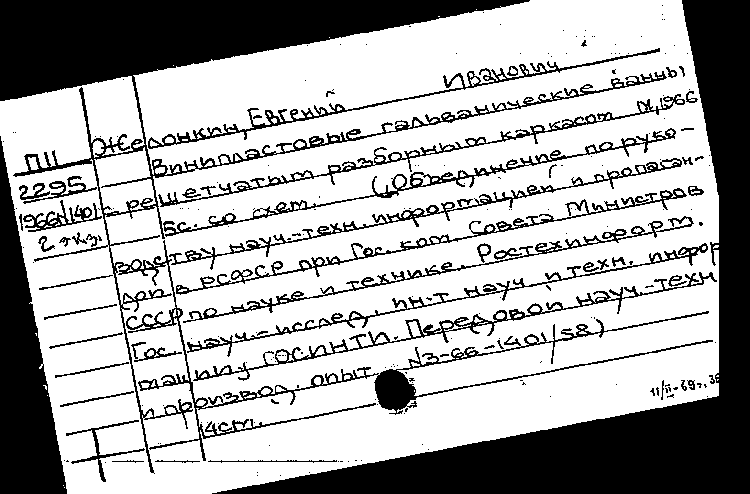 Желонкин, Евгений Иванович
Винипластовые гальванические ванны
ПII
2295
1966N1401
2 экз.
с решетчатым разборным каркасом М., 1966
5с. со схем. (Объединение по руко-
водству науч.-техн. информацией и пропаган-
дой в РСФСР при Гос. ком. Совета Министров
СССР по науке и технике. Ростехинформ.
Гос. науч.-исслед. ин-т науч. и техн. инфор
мации, ГОСИНТИ. Передовой науч.-техн
и производ. опыт N3-66-1401/58)
14см.
11/II-68г.